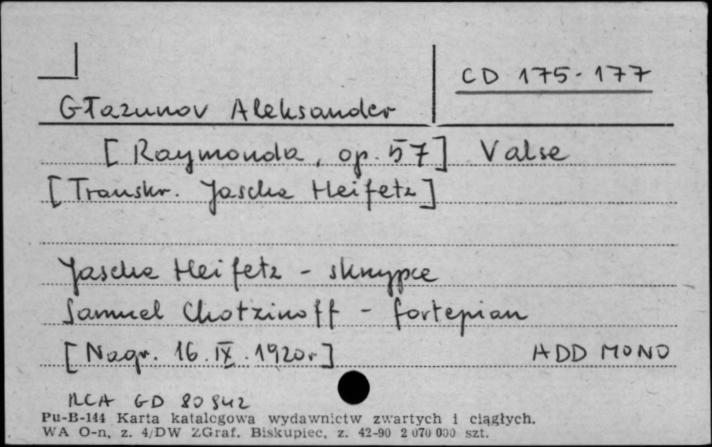 CD 175-177
Głazunov Aleksander
[Raymonda, op. 57] Valse
[Transkr. Jascha Heifetz]
Jascha Heifetz - skrzypce
Samuel Chotzinoff - fortepian
[Nagr. 16.IX.1920r]
ADD MONO
RCA GD 80942
Pu-B-144 Karta katalogowa wydawnictw zwartych i ciągłych.
WA O-n, z. 4/DW ZGraf. Biskupiec, z. 42-90 2 070 000 szt.